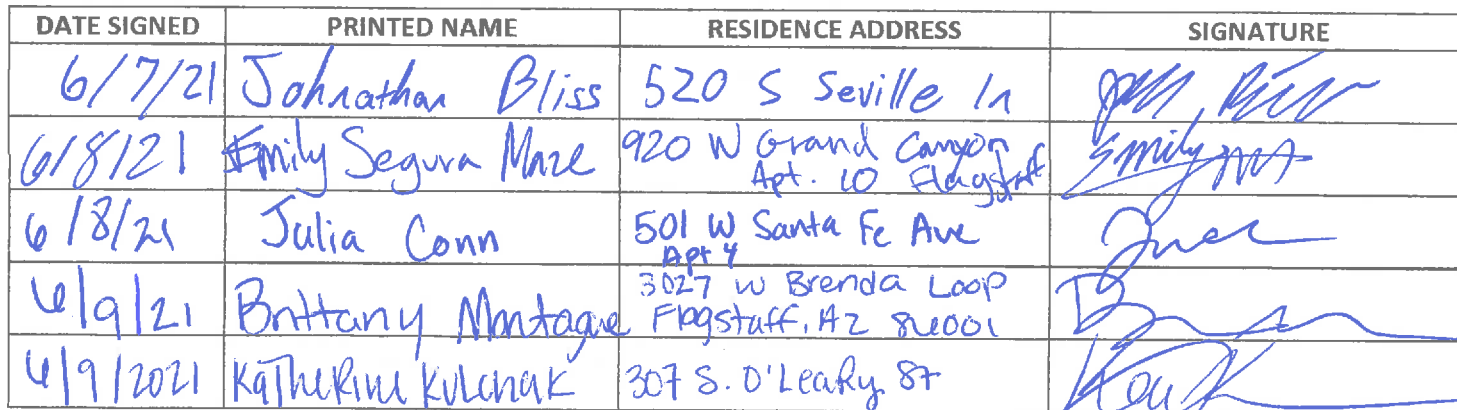 DATE SIGNED PRINTED NAME RESIDENCE ADDRESS SIGNATURE
6/7/21 Johnathan Bliss 520 S Seville ln
6/8/21 Emily Segura Maze 920 W Grand Canyon
Apt. 10 Flagstaff Emily
6/8/21 Julia Conn 501 W Santa Fe Ave
Apt 4
6/9/21 Brittany Montague 3027 W Brenda Loop
Flagstaff, AZ 86001
6/9/2021 Katherine Kulchak 307 S. O'Leary St